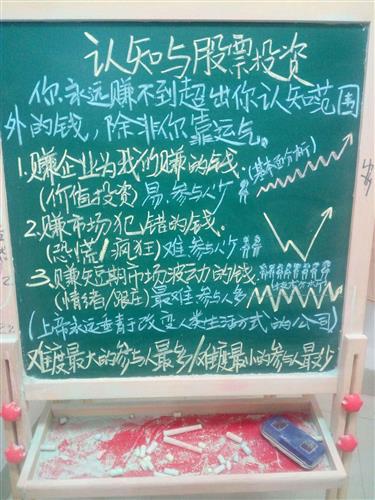 认知与股票投资
你永远赚不到超出你认知范围
外的钱，除非你靠运气。
1.赚企业为我们赚的钱 (基本面分析)
(价值投资) 易.参与人少
2.赚市场犯错的钱.
(恐慌/疯狂) 难 参与人少
3.赚短期市场波动的钱
(情绪/跟庄) 最难 参与人多
(上帝永远垂青于改变人类生活方式的公司)
难度最大的参与人最多/难度最小的参与人最少